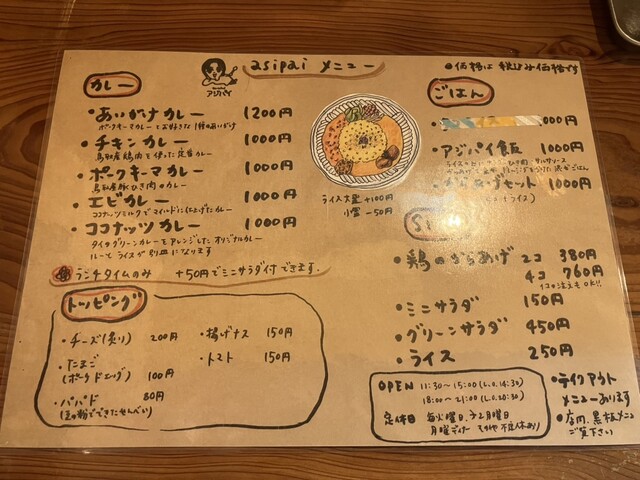 アジパイ
asipai メニュー
●価格は 税込み価格です
カレー
・あいがけカレー 1200円
ポークキーマカレーとお好きな1種のあいがけ
・チキンカレー 1000円
鳥取産鶏肉を使った定番カレー
・ポークキーマカレー 1000円
鳥取産豚ひき肉のカレー
・エビカレー 1000円
ココナッツミルクでマイルドに仕上げたカレー
・ココナッツカレー 1000円
タイのグリーンカレーをアレンジしたオリジナルカレー
ルーとライスが別皿になります
ランチタイムのみ +50円でミニサラダ付できます.
ライス大盛+100円
小盛-50円
トッピング
・チーズ(炙り) 200円
・たまご
(ポーチドエッグ) 100円
・パパド 80円
(豆の粉でできたせんべい)
・揚げナス 150円
・トマト 150円
ごはん
000円
・アジパイ飯 1000円
からあげセット 1000円
・鶏のからあげ 2コ 380円
4コ 760円
1コの注文もOK!!
・ミニサラダ 150円
・グリーンサラダ 450円
・ライス 250円
OPEN 11:30~15:00(L.O.14:30)
18:00~21:00(L.O.20:30)
定休日 毎火曜日、
月曜ディナー その他 不定休あり
・テイクアウト
メニューあります
・店内、黒板メニュー
ご覧下さい